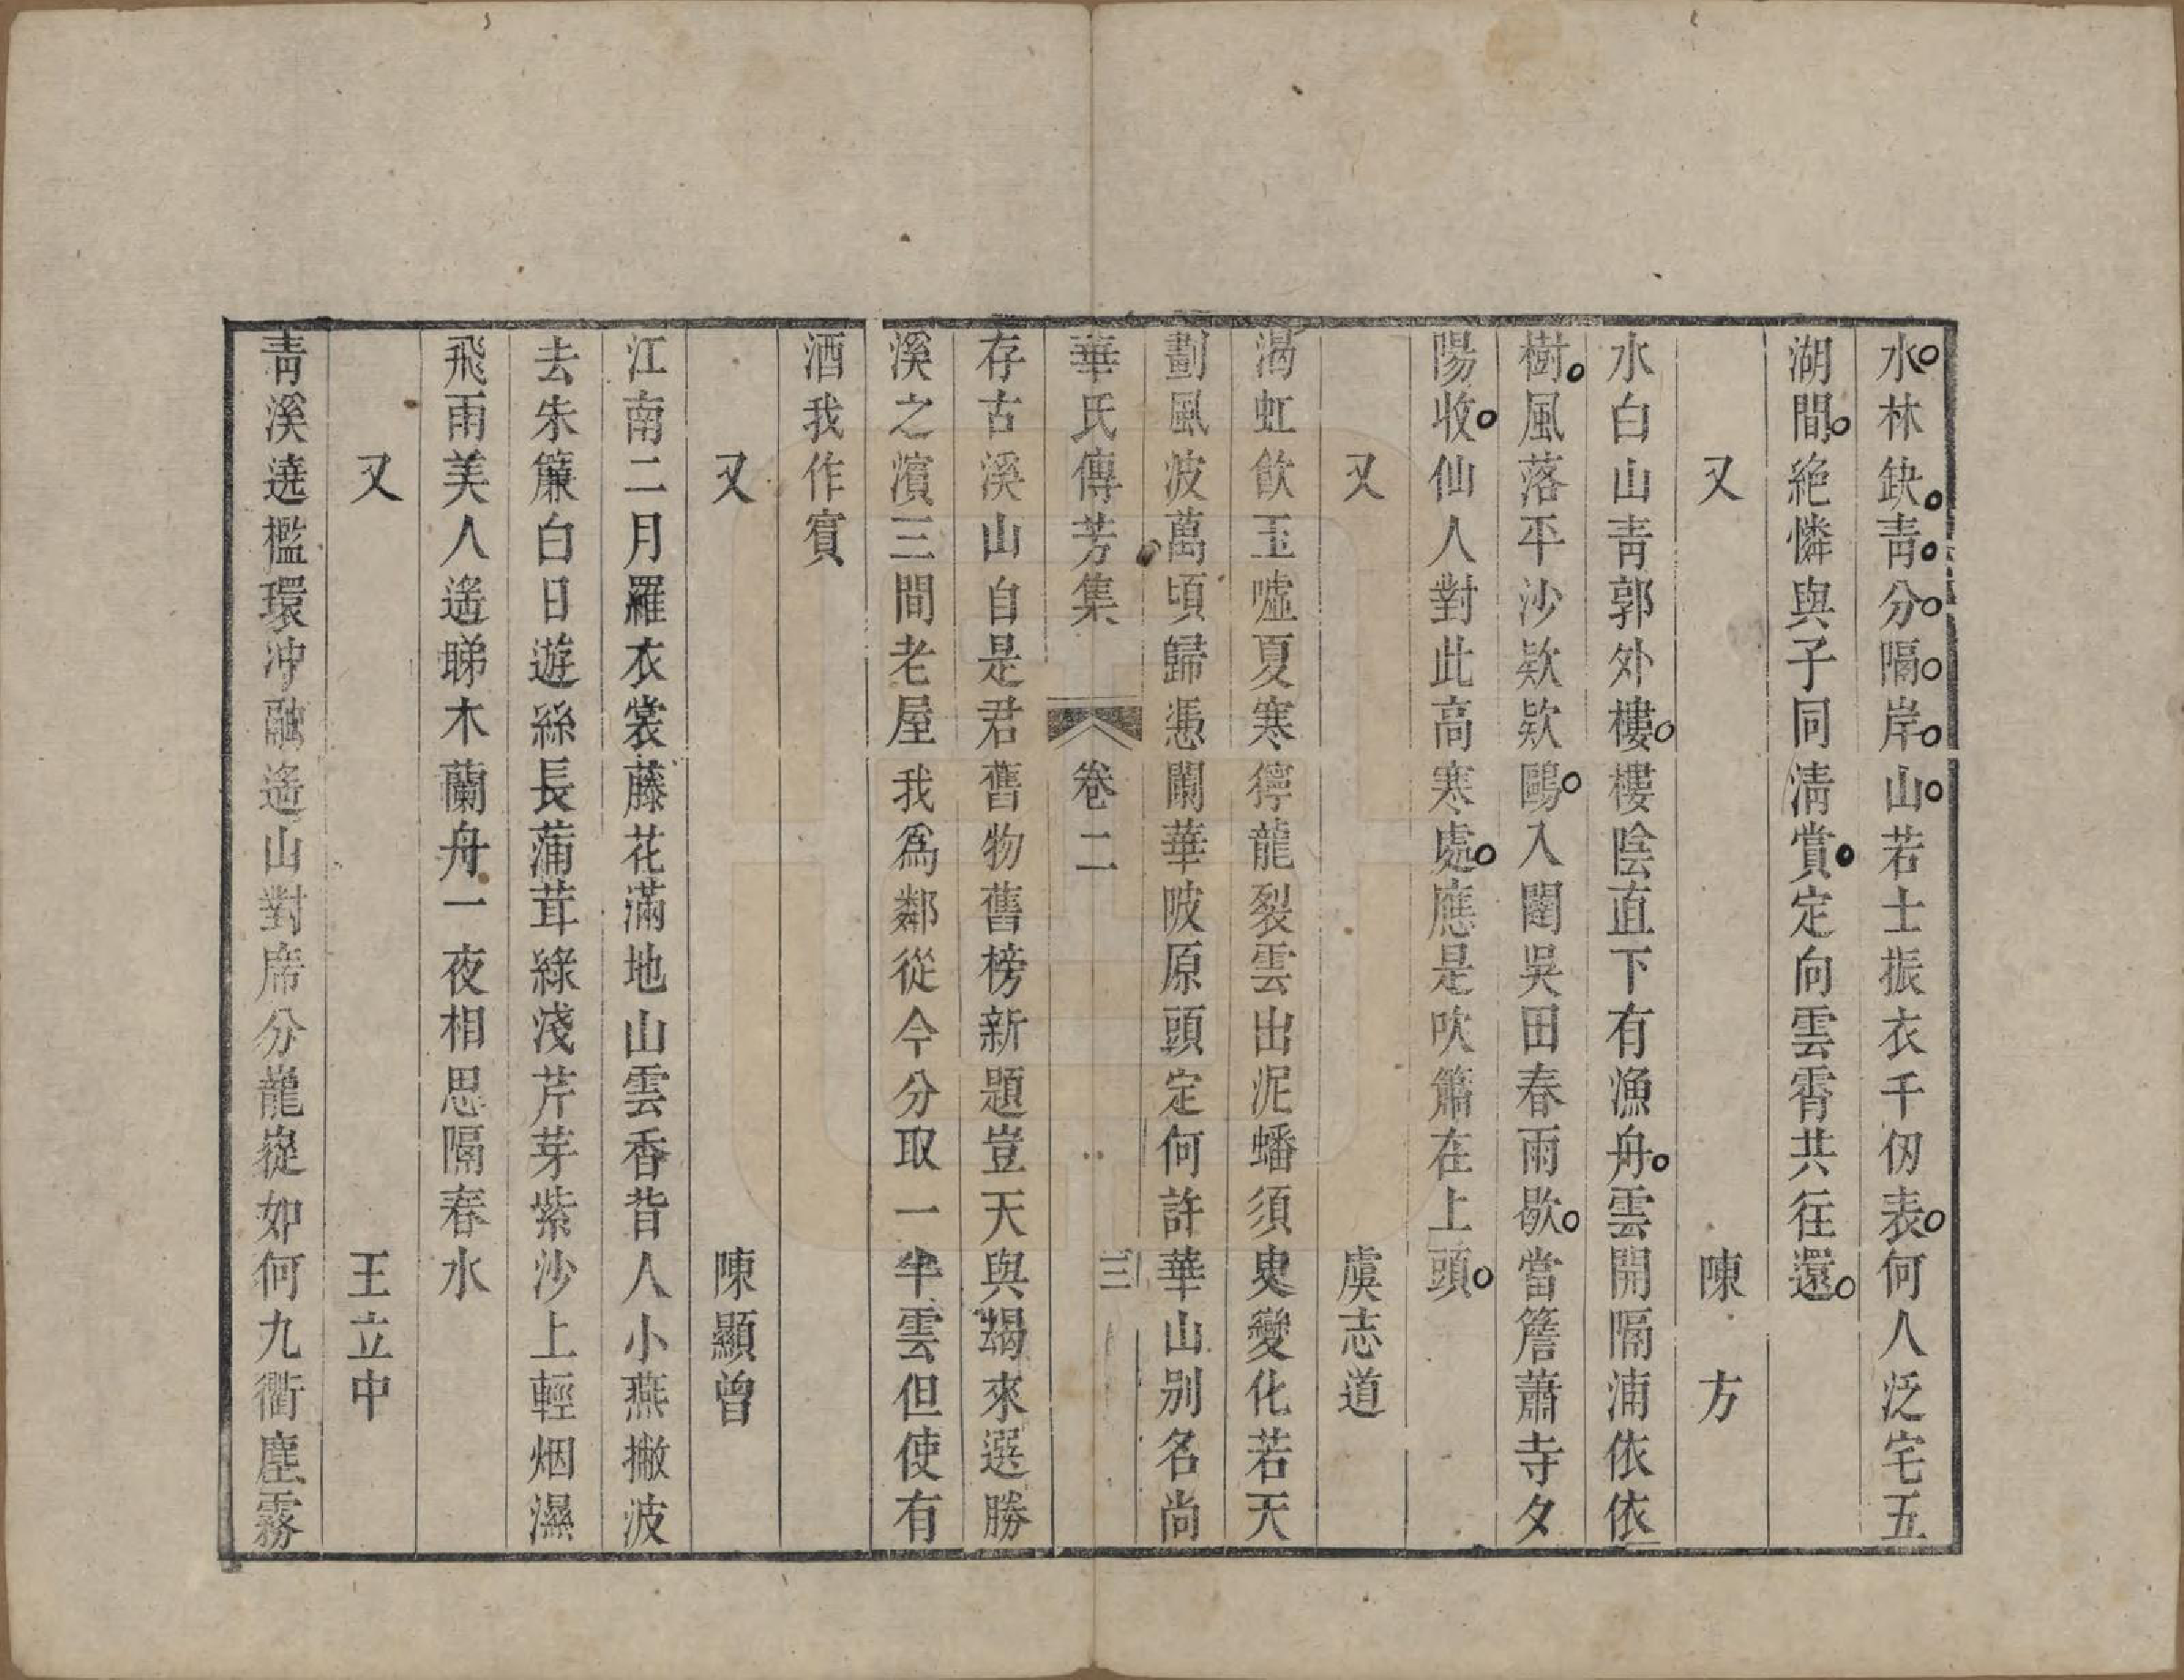 水林缺靑分隔岸山若士振衣千仭表何人泛宅五
湖間絶憐與子同淸賞定向雲霄共往還
又　陳　方
水白山靑郭外樓樓陰直下有漁舟雲開隔浦依依
樹風落平沙欵欵鷗入闥吳田春雨歇當簷蕭寺夕
陽收仙人對此高寒處應是吹簫在上頭
又　虞志道
渴虹飮玉噓夏寒獰龍裂雲出泥蟠須臾變化若天
劃風波萬頃歸憑闌華陂原頭定何許華山別名尚
華氏傳芳集　卷二　三
存古溪山自是君舊物舊榜新題豈天與朅來選勝
溪之濱三間老屋我爲鄰從今分取一半雲但使有
酒我作賓
又　陳顯曾
江南二月羅衣裳藤花滿地山雲香背人小燕撇波
去朱簾白日遊絲長蒲茸綠淺芹芽紫沙上輕烟濕
飛雨美人遙睇木蘭舟一夜相思隔春水
又　王立中
靑溪遶檻環冲融遙山對席分巃嵸如何九衢塵霧